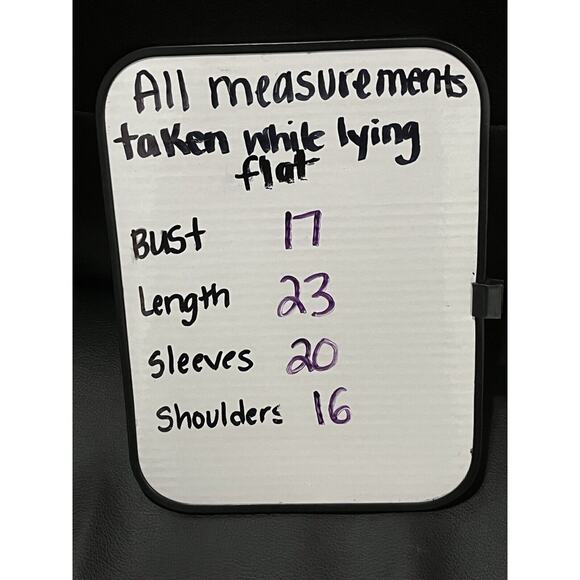 All measurements
taken while lying
flat
Bust 17
Length 23
Sleeves 20
Shoulders 16